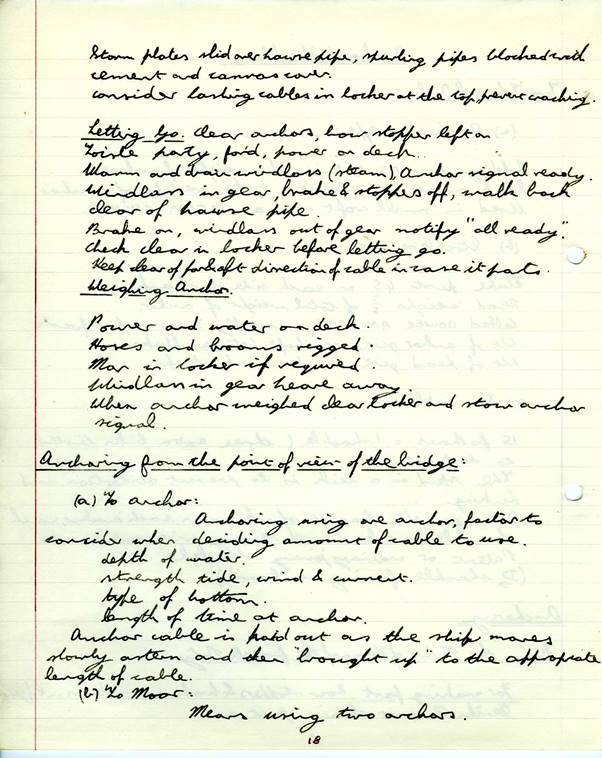 Storm plates slid over hawse pipe, spurling pipes blocked with
cement and canvas cover.
consider lashing cables in locker at the top, prevent craching.
Letting Go. Clear anchors, bow stopper left on
party, for'd, power on deck.
Warm and drain windlass (steam), Anchor signal ready.
Windlass in gear, brake & stoppes off, walk back
clear of hawse pipe.
Brake on, windlass out of gear notify "all ready".
Check clear in locker before letting go.
Keep clear of for & aft direction of cable in case it parts.
Weighing Anchor.
Power and water on deck.
Hoses and brooms rigged.
Man in locker if required.
Windlass in gear heave away.
When anchor weighed clear locker and stow anchor
signal.
Anchoring from the point of view of the bridge:
(a) To anchor:
Anchoring using one anchor, factor to
consider when deciding amount of cable to use.
depth of water.
strength tide, wind & current.
type of bottom.
length of time at anchor.
Anchor cable is paid out as the ship moves
slowly astern and then "brought up" to the appropiate
length of cable.
(b) To Moor:
Means using two anchors.
18